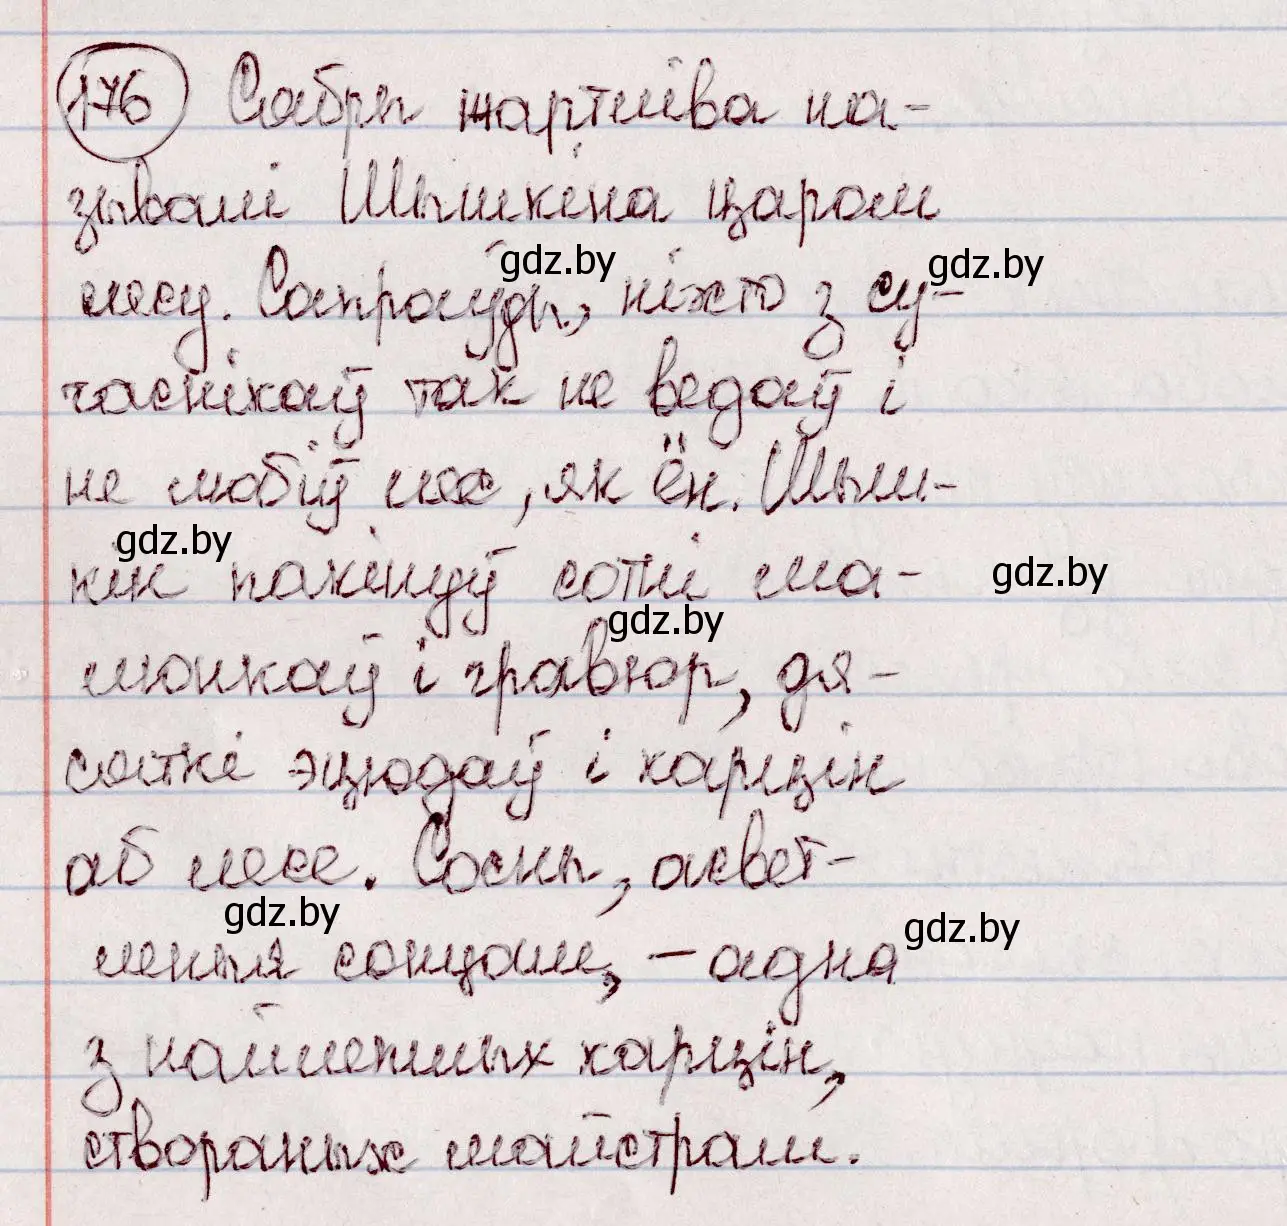 176 Сябры жартліва на-
зывалі Шышкіна царом
лесу. Сапраўды, ніхто з су-
часнікаў так не ведаў і
не любіў лес, як ён. Шыш-
кін пакінуў сотні ма-
люнкаў і гравюр, дзя-
сяткі эцюдаў і карцін
аб лесе. Сосны, асвет-
леныя сонцам, – адна
з найлепшых карцін,
створаных майстрам.
gdz.by
gdz.by
gdz.by
gdz.by
gdz.by
gdz.by
gdz.by